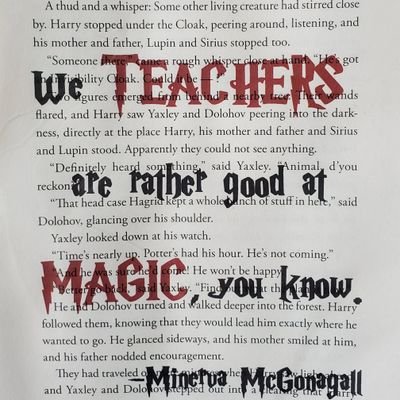 A thud and a whisper: Some other living creature had stirred close
by. Harry stopped under the Cloak, peering around, listening, and
his mother and father, Lupin and Sirius stopped too.
“Someone there,” came a rough whisper close at hand. “He’s got
an Invisibility Cloak. Could it be
We TEACHERS
figures emerged from behind a nearby tree: Their wands
flared, and Harry saw Yaxley and Dolohov peering into the dark-
ness, directly at the place Harry, his mother and father and Sirius
and Lupin stood. Apparently they could not see anything.
“Definitely heard something,” said Yaxley. “Animal, d’you
reckon
are rather good at
“That head case Hagrid kept a whole bunch of stuff in here,” said
Dolohov, glancing over his shoulder.
Yaxley looked down at his watch.
“Time’s nearly up. Potter’s had his hour. He’s not coming.”
“And he was sure he’d come! He won’t be happy
MAGIC, you know.
“Better go back,” said Yaxley. “Find out
He and Dolohov turned and walked deeper into the forest. Harry
followed them, knowing that they would lead him exactly where he
wanted to go. He glanced sideways, and his mother smiled at him,
and his father nodded encouragement.
They had traveled on
–Minerva McGonagall
and Yaxley and Dolohov stepped out into a clearing that Harry